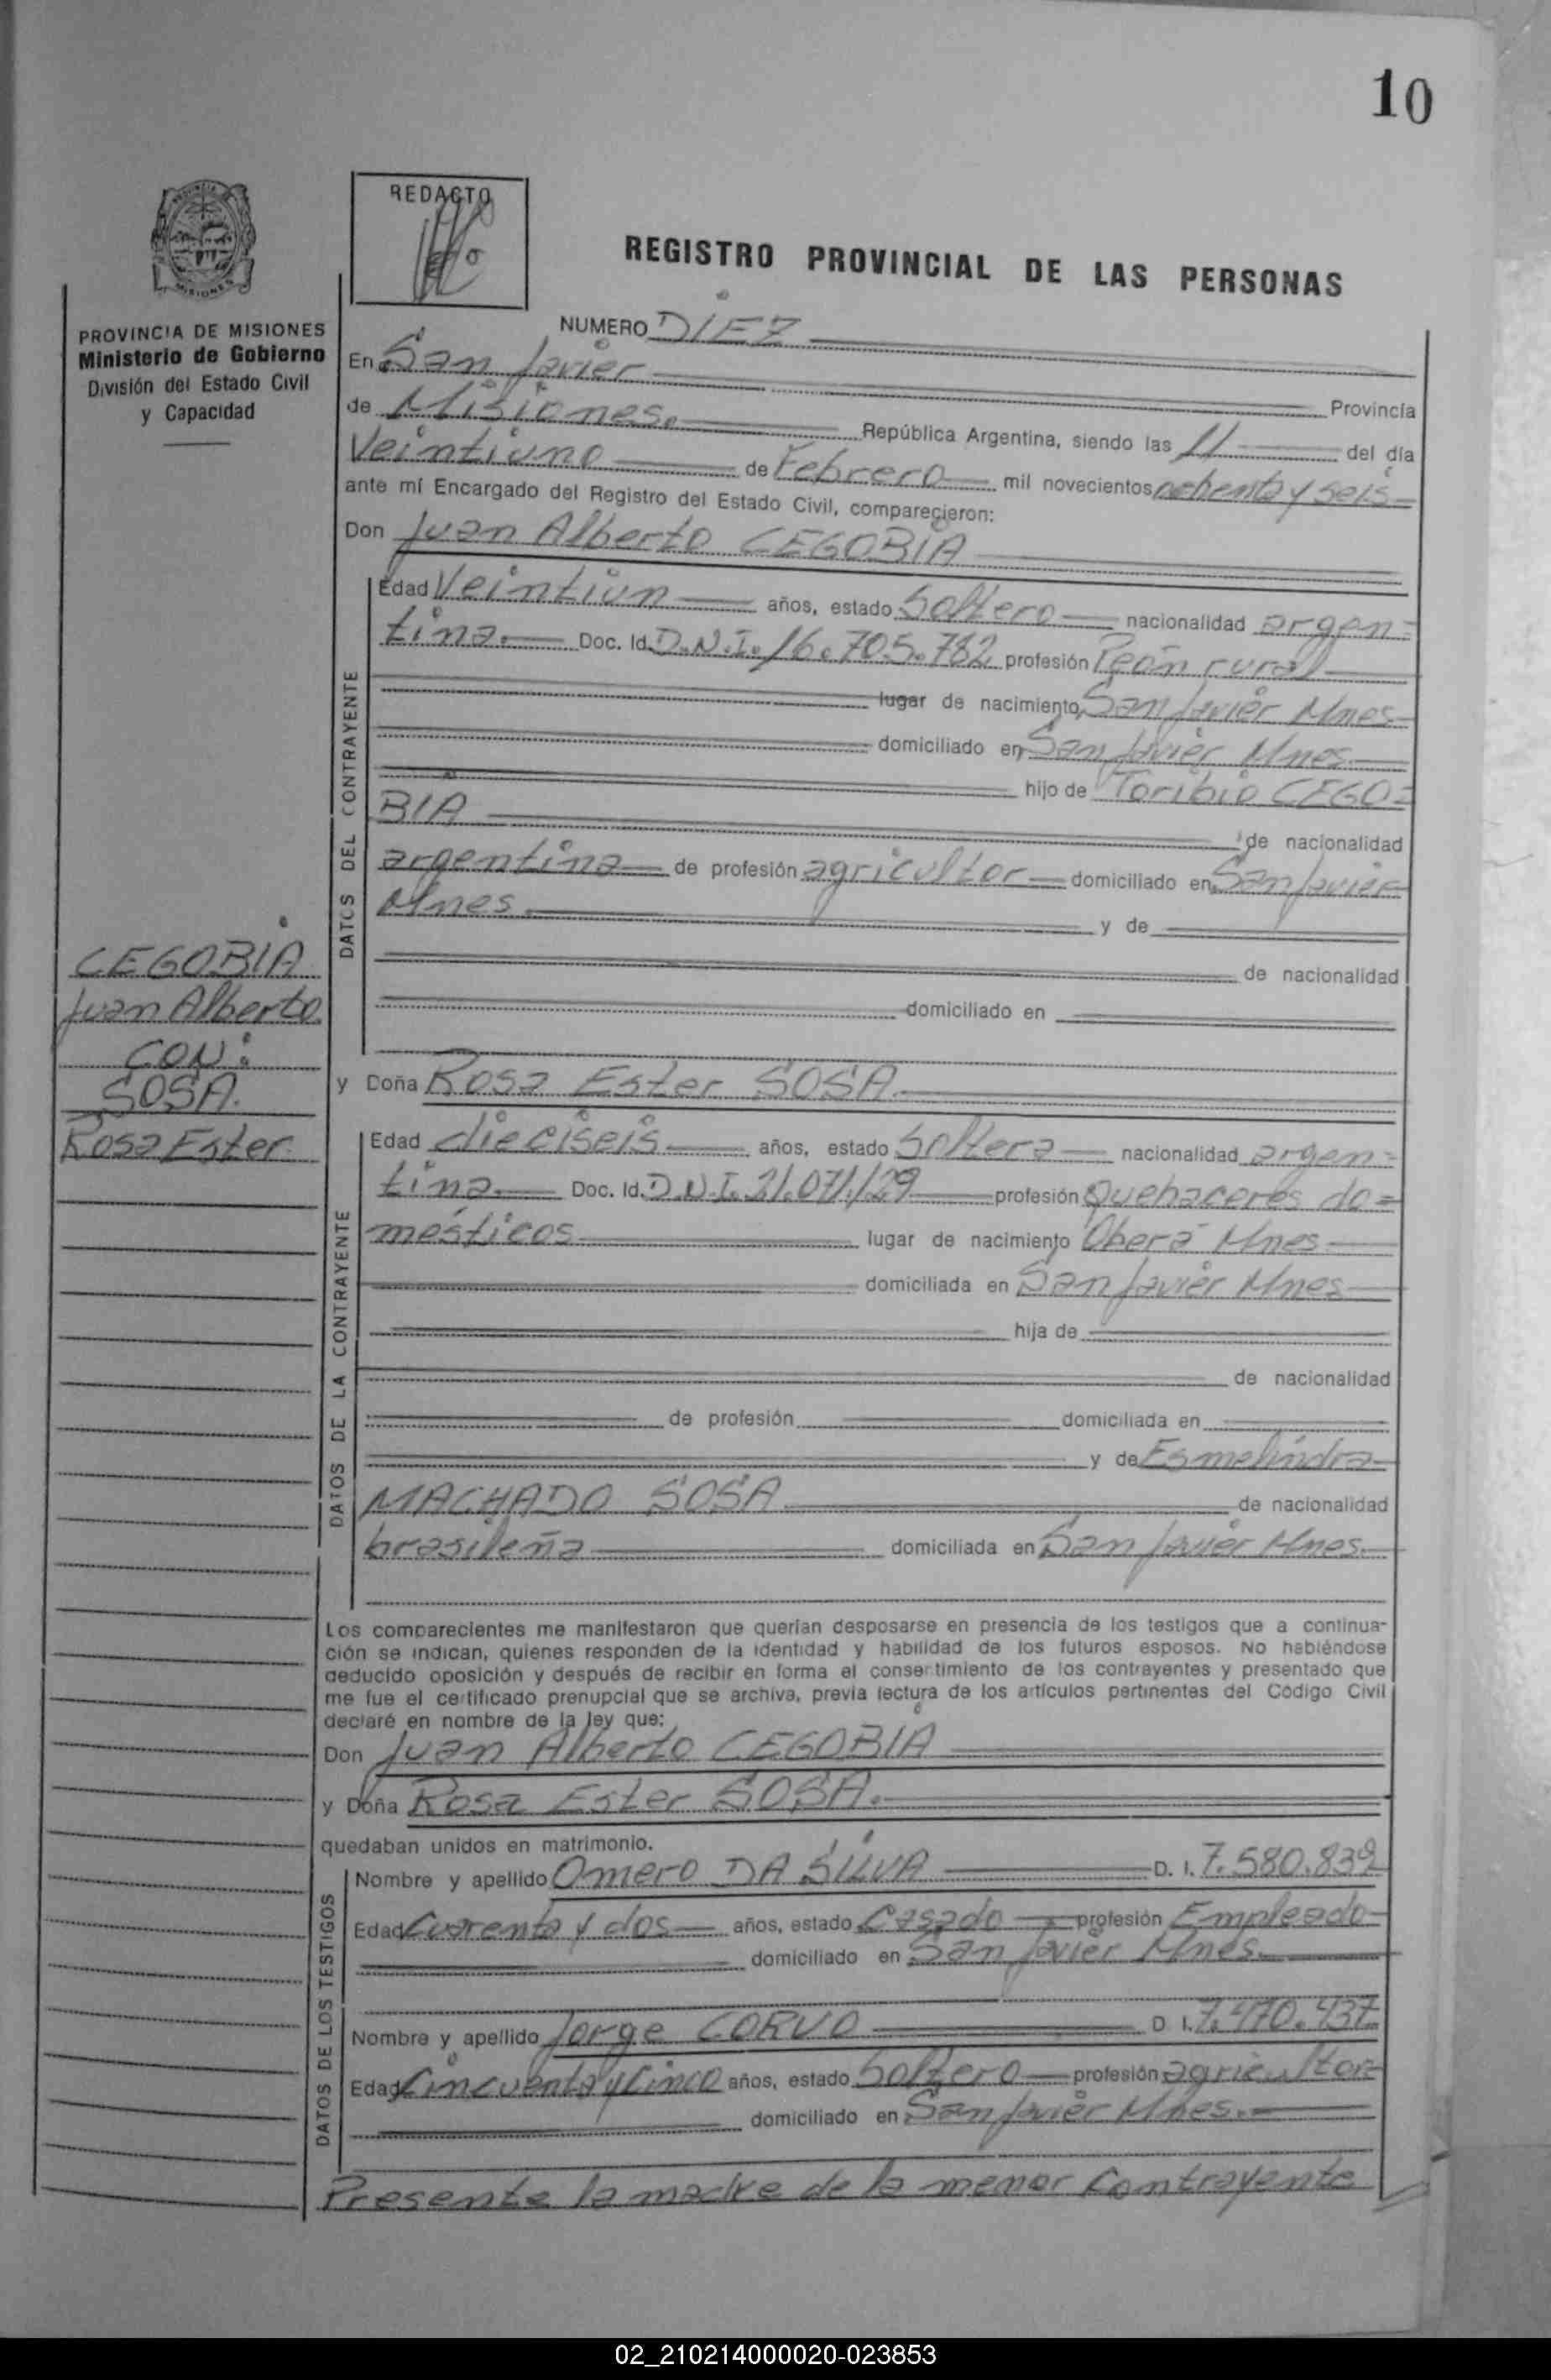 10
REDACTO
REGISTRO PROVINCIAL DE LAS PERSONAS
PROVINCIA DE MISIONES
Ministerio de Gobierno
División del Estado Civil
y Capacidad
CEGOBIA
Juan Alberto
CON:
SOSA.
Rosa Ester
NUMERO DIEZ
En San Javier
Provincia
de Misiones. República Argentina, siendo las 11 del día
Veintiuno de Febrero mil novecientos ochenta y seis
ante mí Encargado del Registro del Estado Civil, comparecieron:
Don Juan Alberto CEGOBIA
DATOS DEL CONTRAYENTE
Edad Veintiun años, estado Soltero nacionalidad argen=
tina. Doc. Id. D.N.I. 16.705.782 profesión Peón rural
lugar de nacimiento San Javier Mnes
domiciliado en San Javier Mnes.
hijo de Toribio CEGO=
BIA de nacionalidad
argentina de profesión agricultor domiciliado en San Javier
Mnes. y de
de nacionalidad
domiciliado en
y Doña Rosa Ester SOSA.
DATOS DE LA CONTRAYENTE
Edad dieciseis años, estado Soltera nacionalidad argen=
tina. Doc. Id. D.N.I. 21.071.129 profesión Quehaceres do=
mésticos lugar de nacimiento Oberá Mnes.
domiciliada en San Javier Mnes
hija de
de nacionalidad
de profesión domiciliada en
y de Esmelindra
MACHADO SOSA de nacionalidad
brasileña domiciliada en San Javier Mnes.
Los comparecientes me manifestaron que querían desposarse en presencia de los testigos que a continua-
ción se indican, quienes responden de la identidad y habilidad de los futuros esposos. No habiéndose
deducido oposición y después de recibir en forma el consertimiento de los contrayentes y presentado que
me fue el certificado prenupcial que se archiva, previa lectura de los artículos pertinentes del Código Civil
declaré en nombre de la ley que:
Don Juan Alberto CEGOBIA
y Doña Rosa Ester SOSA.
quedaban unidos en matrimonio.
DATOS DE LOS TESTIGOS
Nombre y apellido Omero DA SILVA D. I. 7.580.839
Edad Cuarenta y dos años, estado Casado profesión Empleado
domiciliado en San Javier Mnes.
Nombre y apellido Jorge CORVO D. I. 7.470.437
Edad Cincuenta y Cinco años, estado Soltero profesión agricultor
domiciliado en San Javier Mnes.
Presente la madre de la menor Contrayente
02_210214000020-023853